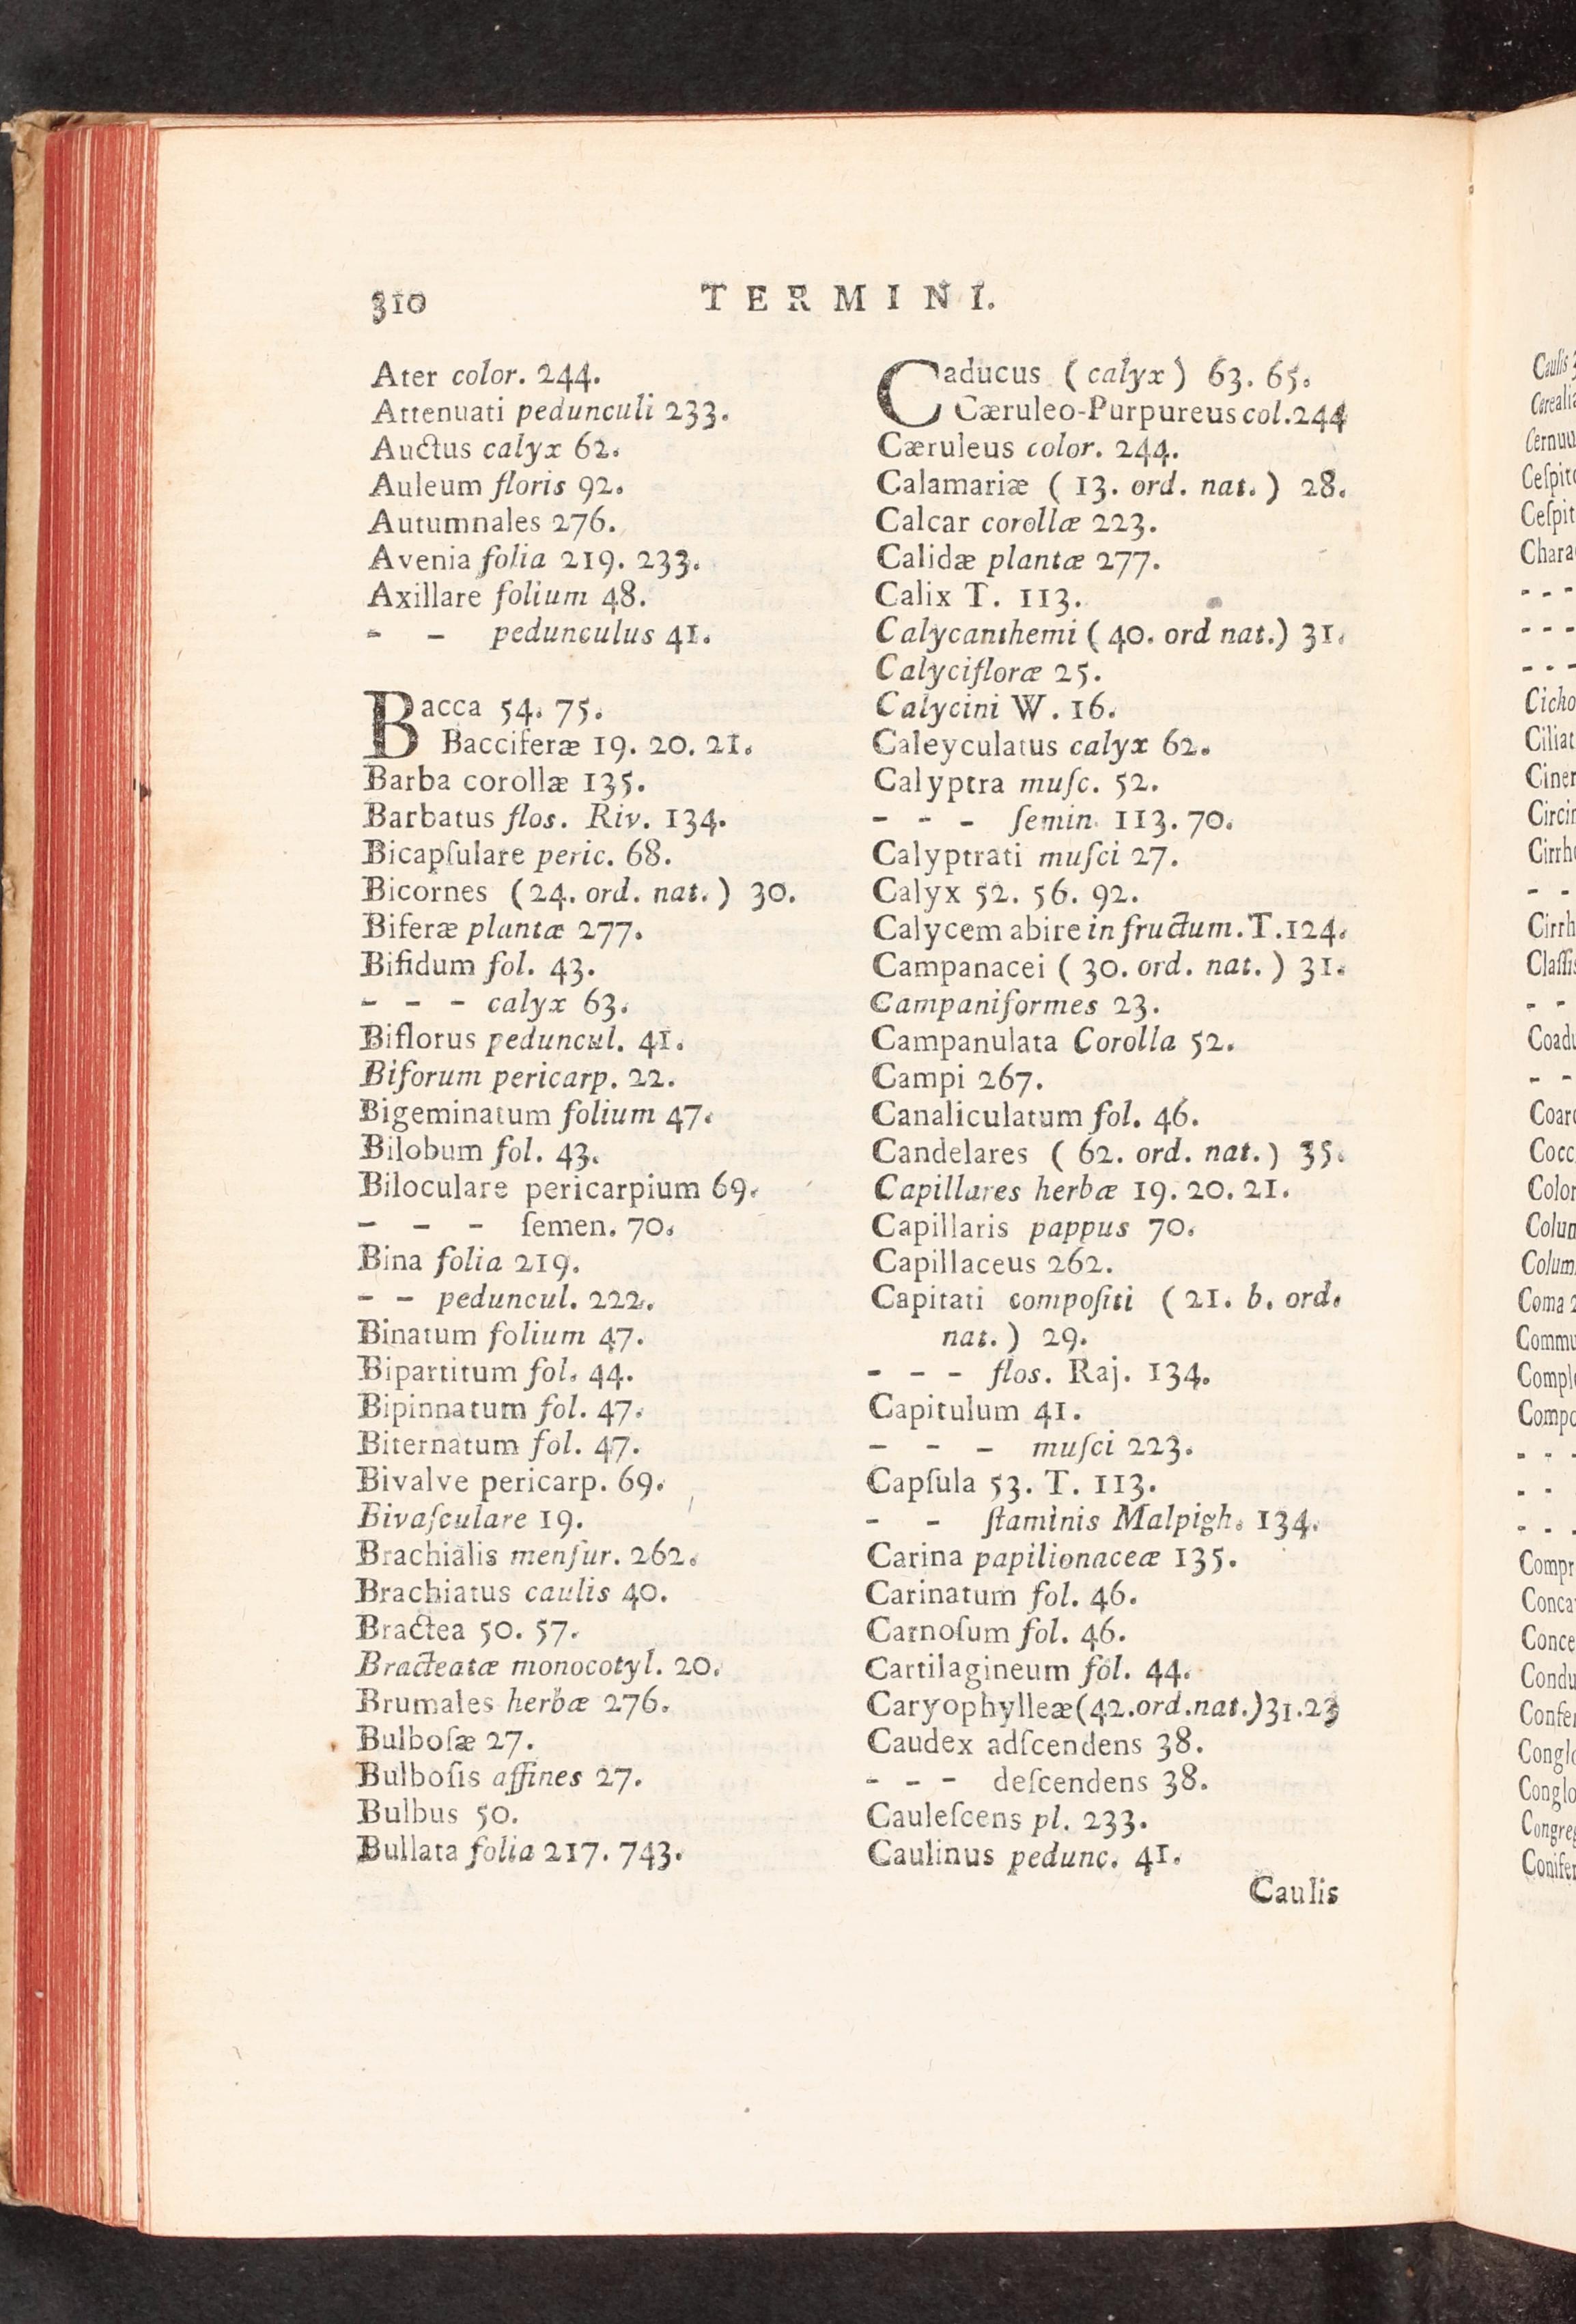 310
TERMINI.
Ater color. 244.
Attenuati pedunculi 233.
Auctus calyx 62.
Auleum floris 92.
Autumnales 276.
Avenia folia 219. 233.
Axillare folium 48.
- - pedunculus 41.
Bacca 54. 75.
Bacciferæ 19. 20. 21.
Barba corollæ 135.
Barbatus flos. Riv. 134.
Bicapſulare peric. 68.
Bicornes (24. ord. nat.) 30.
Biferæ plantæ 277.
Bifidum fol. 43.
- - - calyx 63.
Biflorus peduncul. 41.
Biforum pericarp. 22.
Bigeminatum folium 47.
Bilobum fol. 43.
Biloculare pericarpium 69.
- - - ſemen. 70.
Bina folia 219.
- - peduncul. 222.
Binatum folium 47.
Bipartitum fol. 44.
Bipinnatum fol. 47.
Biternatum fol. 47.
Bivalve pericarp. 69.
Bivaſculare 19.
Brachialis menſur. 262.
Brachiatus caulis 40.
Bractea 50. 57.
Bracteatæ monocotyl. 20.
Brumales herbæ 276.
Bulboſæ 27.
Bulboſis affines 27.
Bulbus 50.
Bullata folia 217. 743.
Caducus (calyx) 63. 65.
Cæruleo-Purpureus col. 244
Cæruleus color. 244.
Calamariæ (13. ord. nat.) 28.
Calcar corollæ 223.
Calidæ plantæ 277.
Calix T. 113.
Calycanthemi (40. ord nat.) 31.
Calycifloræ 25.
Calycini W. 16.
Caleyculatus calyx 62.
Calyptra muſc. 52.
- - - ſemin. 113. 70.
Calyptrati muſci 27.
Calyx 52. 56. 92.
Calycem abire in fructum. T. 124.
Campanacei (30. ord. nat.) 31.
Campaniformes 23.
Campanulata Corolla 52.
Campi 267.
Canaliculatum fol. 46.
Candelares (62. ord. nat.) 35.
Capillares herbæ 19. 20. 21.
Capillaris pappus 70.
Capillaceus 262.
Capitati compoſiti (21. b. ord.
nat.) 29.
- - - flos. Raj. 134.
Capitulum 41.
- - - muſci 223.
Capſula 53. T. 113.
- - ſtaminis Malpigh. 134.
Carina papilionaceæ 135.
Carinatum fol. 46.
Carnoſum fol. 46.
Cartilagineum fol. 44.
Caryophylleæ (42. ord. nat.) 31. 23
Caudex adſcendens 38.
- - - deſcendens 38.
Cauleſcens pl. 233.
Caulinus pedunc. 41.
Caulis